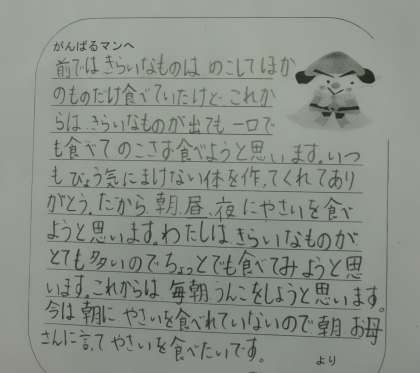 がんばるマンへ
前ではきらいなものは のこしてほか
のものだけ食べていたけど、これか
らは、きらいなものが出ても一口で
も食べてのこさず食べようと思います。いつ
もびょう気にまけない体を作ってくれてあり
がとう。だから、朝、昼、夜にやさいを食べ
ようと思います。わたしはきらいなものが
とても多いのでちょっとでも食べてみようと思
います。これからは毎朝うんこをしようと思います。
今は朝にやさいを食べれていないので朝お母
さんに言ってやさいを食べたいです。
より